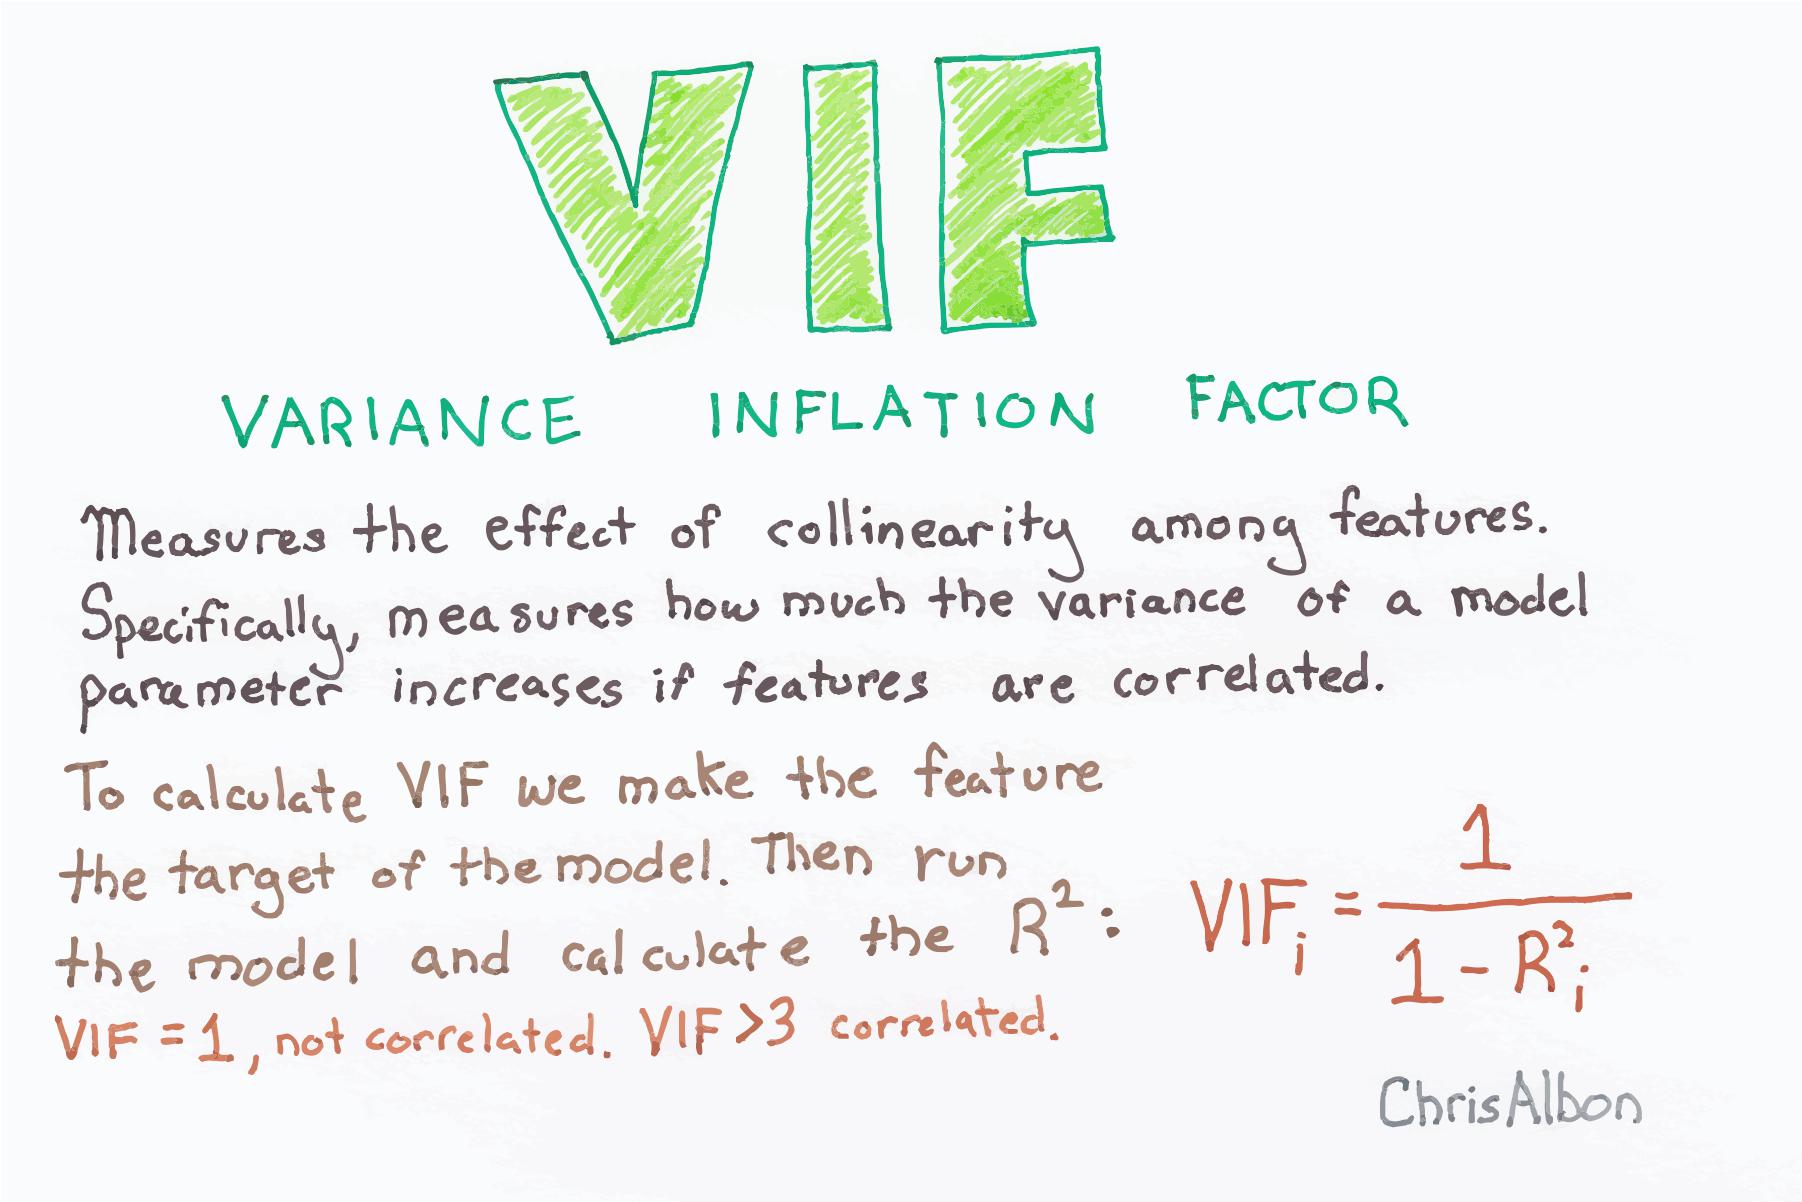 VIF
VARIANCE INFLATION FACTOR
Measures the effect of collinearity among features.
Specifically, measures how much the variance of a model
parameter increases if features are correlated.
To calculate VIF we make the feature
the target of the model. Then run
the model and calculate the R²:
VIFᵢ = 1 / (1 - R²ᵢ)
VIF = 1, not correlated. VIF >3 correlated.
ChrisAlbon